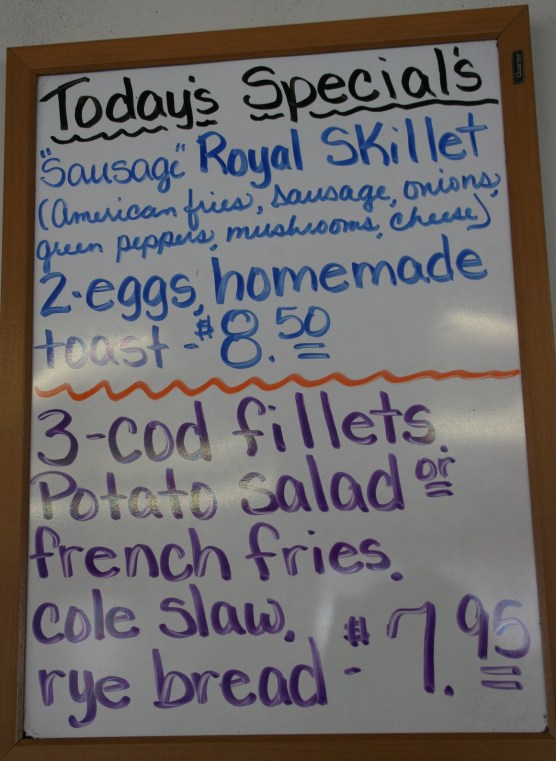 Today's Special's
"Sausage" Royal Skillet
(American fries, sausage, onions,
green peppers, mushrooms, cheese)
2-eggs, homemade
toast - $8.50
3-cod fillets.
Potato salad or
french fries.
cole slaw.
rye bread - $7.95
Quartet